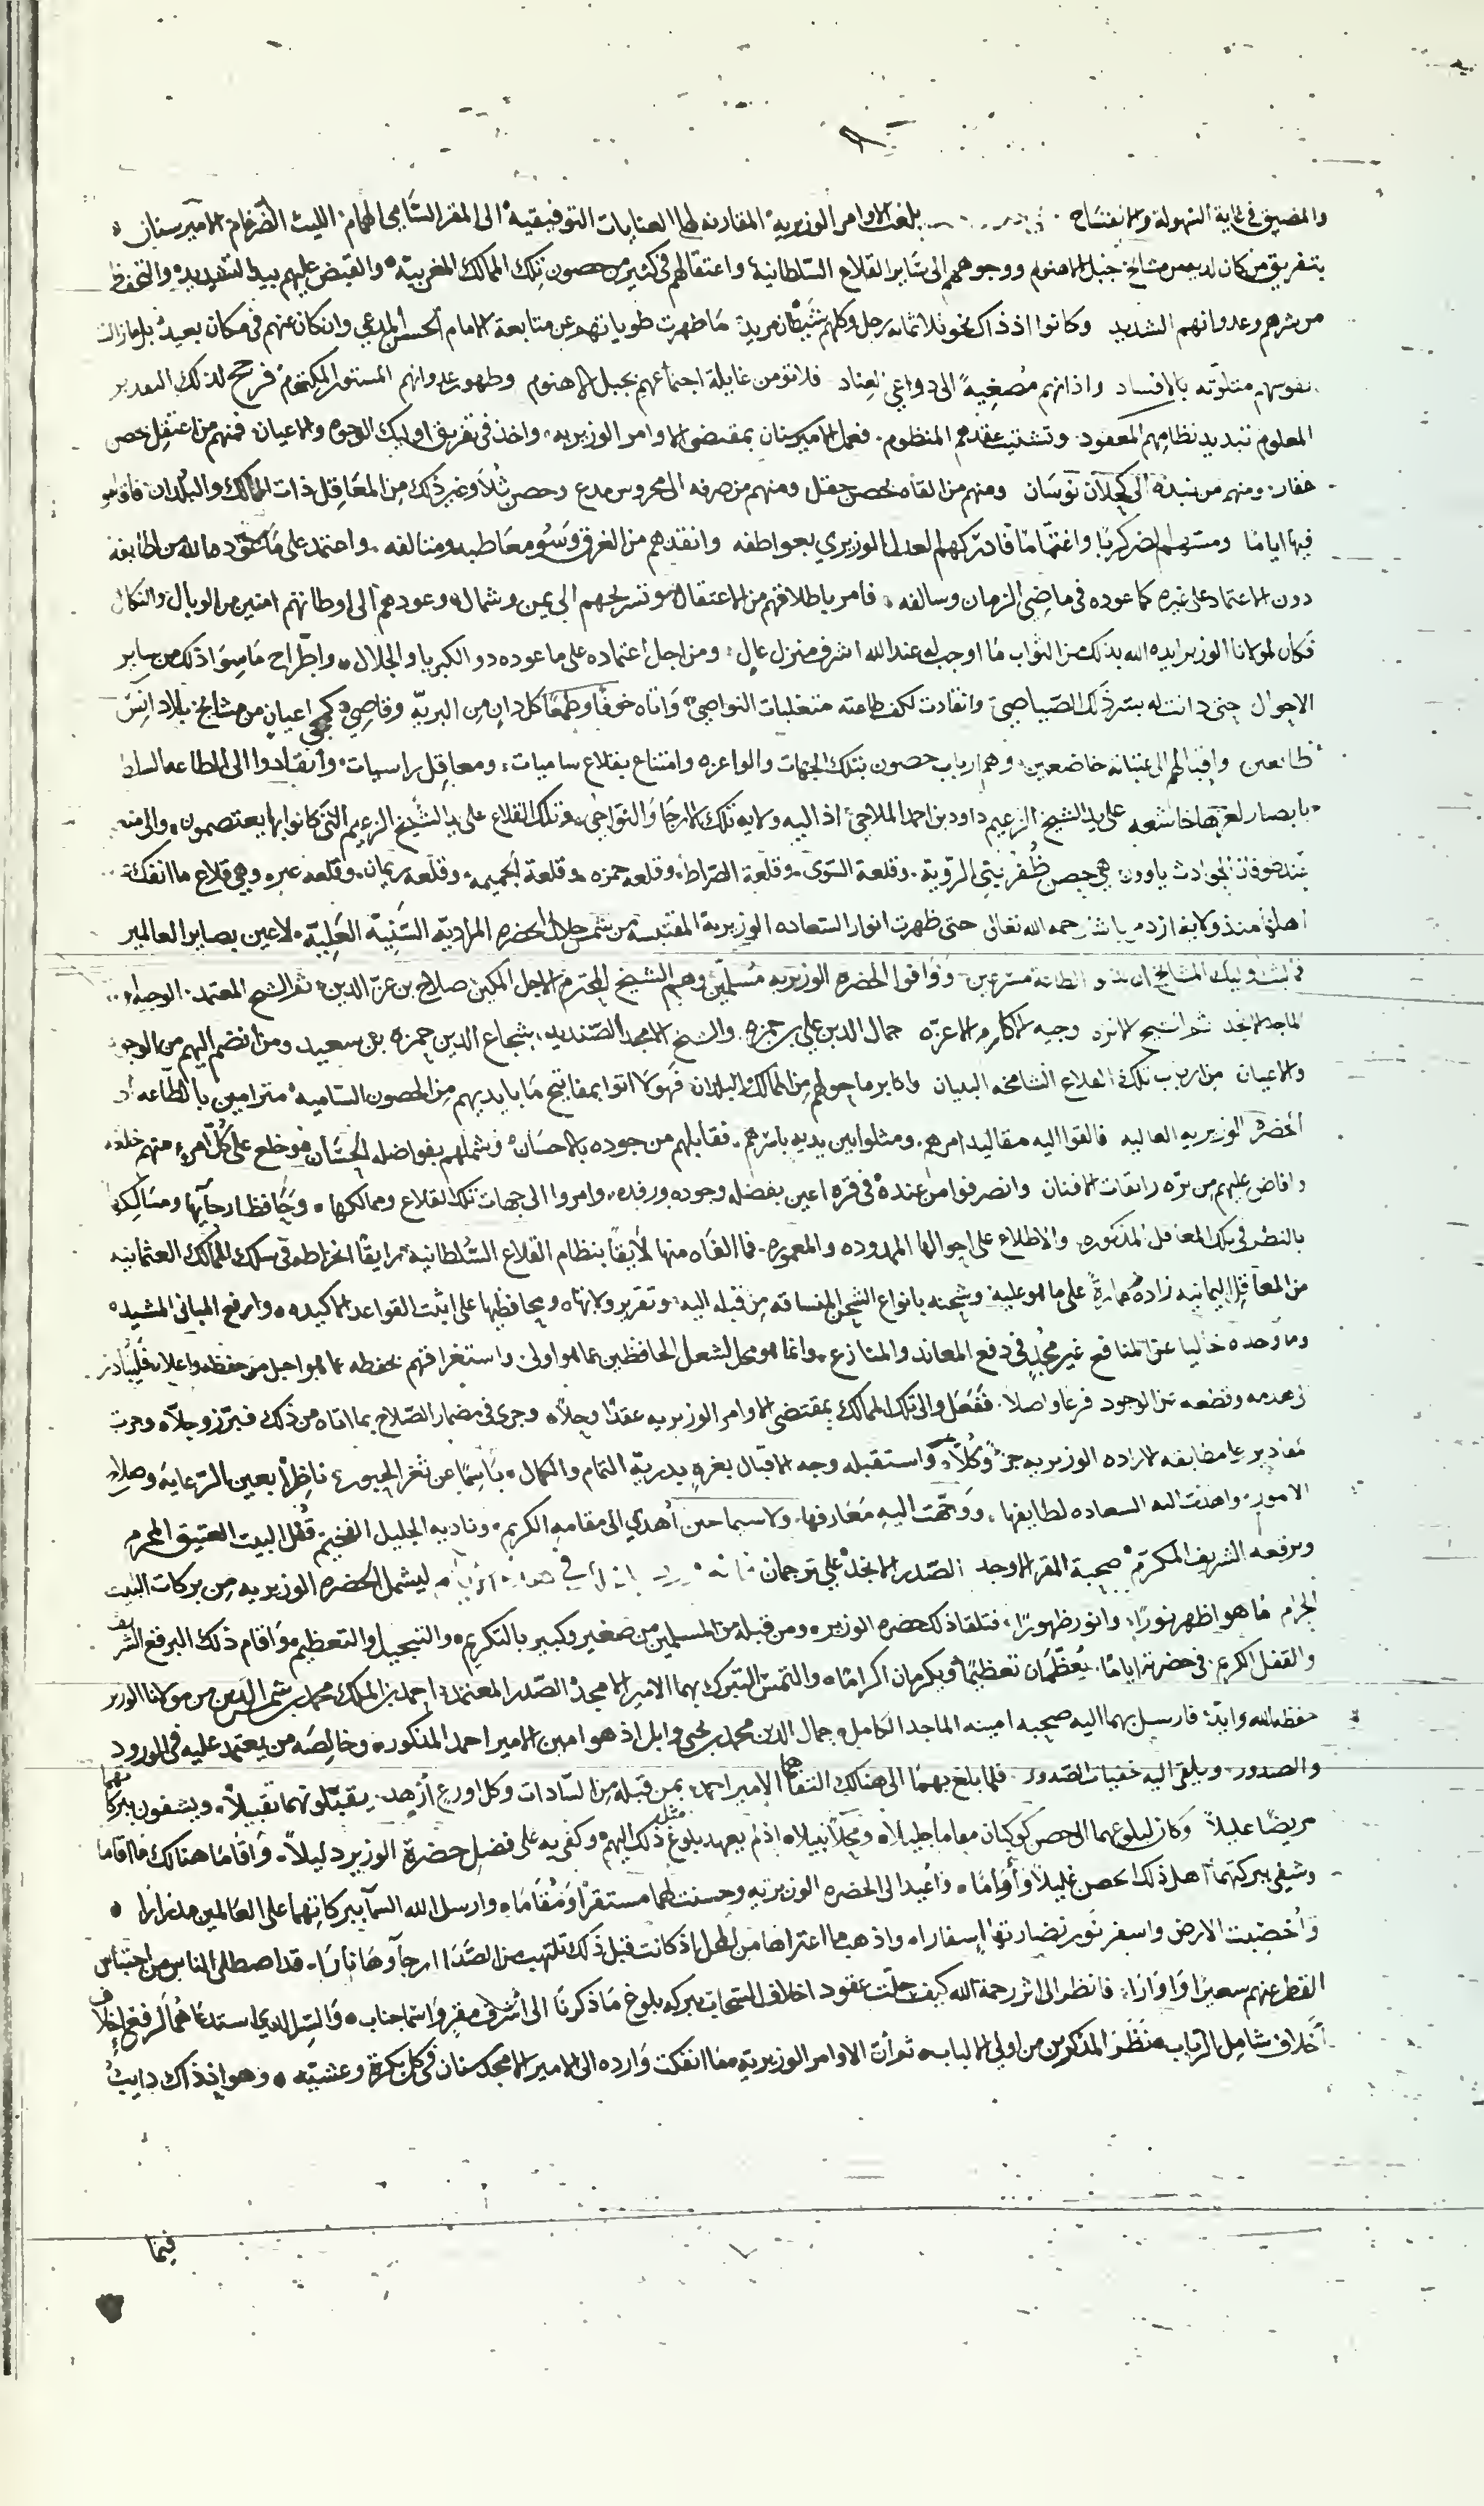 والمضيق في غاية السهولة والانفتاح بلغت الاوامر الوزيريه المقارنه لها العنايات التوفيقية الى المقر السامي الهمام الليث الضرغام الامير سنان
بتفريق من كان لديه من مشايخ جبل الاهنوم ووجوههم الى ساير القلاع السلطانية واعتقالهم في كثير من حصون تلك الممالك المغربية والقبض عليهم بيد التشديد والتحفظ
من شرهم وعدوانهم الشديد وكانوا اذ ذاك نحو ثلاثمائه رجل وكلهم شيطان مريد ما ظهرت طوياتهم عن متابعة الامام الحسن المدعي وان كان عنهم في مكان بعيد بل مازالت
نفوسهم متلوثه بالافساد واذانهم مصغية الى دواعي العناد فلا تؤمن غايلة اجتماعهم بجبل الاهنوم وظهور عدوانهم المستور المكتوم فرجح لذلك التدبير
المعلوم تبديد نظامهم المعقود وتشتيت عقدهم المنظوم فعمل الامير سنان بمقتضى الاوامر الوزيريه واخذ في تفريق اوليك الوجوه والاعيان فمنهم من اعتقل بحصن
عفار ومنهم من نبذه الى كحلان نوسان ومنهم من القاه بحصن جفل ومنهم من صرفه الى محروس مدع وحصن ثلا وغير ذلك من المعاقل ذات الممالك والبلدان فاقاموا
فيها اياما ومسهم الضر كربا واغتماما فادركهم العدل الوزيري بعواطفه وانقذهم من الغرق وسو معاطبه ومتالفه واعتمد على ما عوده الله من الطايفه
دون الاعتماد على غيره كما عوده في ماضي الزمان وسالفه فامر باطلاقهم من الاعتقال وتسريحهم الى يمن وشمال وعودهم الى اوطانهم امنين من الوبال والنكال
فكان لمولانا الوزير ايده الله بذلك من الثواب ما اوجب له عند الله اشرف منزل عال ومن اجل اعتماده على ما عوده ذو الكبريا والجلال واطراح ما سوا ذلك من ساير
الاحوال حتى دانت له بسر ذلك الصياصي وانقادت لكف طاعته متغلبات النواصي واتاه خوفا وطمعا كل دان من البريه وقاصي كمجي اعيان من مشايخ بلاد انس
طايعين واقبالهم الى عتباته خاضعين وهم ارباب حصون بتلك الجهات والواعره وامتناع بقلاع ساميات ومعاقل راسيات وانقادوا الى الطاعه السلطانيه
بابصار لعزها خاشعه على يد الشيخ الزعيم داود بن احمد الملاحي اذ اليه ولاية تلك الارجا والنواحي وتلك القلاع على يد الشيخ الزعيم التي كانوا بها يعتصمون والى منعتها
عند خوفان الحوادث ياوون هي حصن ظفر بيتي الروية وقلعة السوى وقلعة الصراط وقلعه حمزه وقلعة الجميمه وقلعة ريمان وقلعه عبر وهي قلاع ما انفكت
اهلها منذ ولاية ازدمر باشا رحمه الله تعالى حتى ظهرت انوار السعاده الوزيرية المقتبسه من شمس جلال الحضره المراديه السنية العلية لاعين بصاير العالمين
فانبعث اوليك المشايخ الى الطاعة مسرعين ووافوا الحضره الوزيريه مسلمين وهم الشيخ المحترم الاجل المكين صلاح بن عز الدين ثم الشيخ المعتمد الوجيه
الماجد الانجد ثم الشيخ الانزه وجيه الاكارم الاعزه جمال الدين علي بن حمزه والشيخ الامجد الصنديد شجاع الدين حمزه بن سعيد ومن انضم اليهم من الوجوه
والاعيان من ارباب تلك القلاع الشامخه البنيان واكابر ما حولهم من الممالك والبلدان فهولا اتوا بمفاتيح ما بايديهم من الحصون الساميه مترامين بالطاعه الى
الحضرة الوزيريه العاليه فالقوا اليه مقاليد امرهم ومثلوا بين يديه باسرهم فقابلهم من جوده بالاحسان وشملهم بفواضله الحسان وخلع على كل امرء منهم خلعه
وافاض عليهم من بره رائقات الافنان وانصرفوا من عنده في قره اعين بفضله وجوده ورفده وامروا الى جهات تلك القلاع وممالكها وحافظ ارجآيها ومسالكها
بالنظر في تلك المعاقل المذكوره والاطلاع على احوالها المهدوده والمعموره فما الفاه منها لايقا بنظام القلاع السلطانية رايقا انخراطه في سلك الممالك العثمانيه
من المعاقل اليمانيه زاده عمارة على ما هو عليه وشحنه بانواع الشحن المنساقه من قبله اليه وتقرير ولاتها ومحافظيها على اثبت القواعد الاكيده وارفع المبانى المشيده
وما وجده خاليا عن المنافع غير مجد في دفع المعاند والمنازع وانما هو محل لشغل الحافظين عما هو اولى واستغراقهم بحفظه عما هو اجل من حفظه واعلا فليبادر
الى هدمه وقطعه من الوجود فرعا واصلا ففعل والي تلك الممالك بمقتضى الاوامر الوزيريه عقدا وحلا وجرى في مضمار الصلاح بما اتاه من ذلك فبرز وجلا وجرت
مقادير على مطابقه الاراده الوزيريه جزا وكلا واستقبله وجه الاقبال بغرة بدرية التمام والكمال باسما عن ثغر الحبور ناظرا بعين الرعايه وصلاح
الامور واهدت اليه السعاده لطايفها ووجهت اليه معارفها ولا سيما حين اهدي الى مقامه الكريم وناديه الجليل الفخيم قفل البيت العتيق المحرم
وبرقعه الشريف المكرم صحبة المقر الاوحد الصدر الانجد علي ترجمان ليشمل الحضره الوزيريه من بركات البيت
الحرام ما هو اظهر نورا وانور ظهورا فتلقا ذلك حضره الوزير ومن قبله من المسلمين من صغير وكبير بالتكريم والتبجيل والتعظيم واقام ذلك البرقع الشريف
والقفل الكريم في حضرته اياما يعظمان تعظيما ويكرمان اكراما والتمس التبرك بهما الامير الامجد الصدر المعتمد احمد بن الملك محمد بن شمس الدين من مولانا الوزير
حفظه الله وابده فارسل بهما اليه صحبه امينه الماجد الكامل جمال الدين محمد بن يحيى وابل اذ هو امين الامير احمد المذكور وخالصه من يعتمد عليه في الورود
والصدور ويلقى اليه خفيات الصدور فلما بلغ بهما الى هنالك التقاهما الامير احمد بمن قبله من السادات وكل اورع ازهد يقبلونهما تقبيلا ويشفون ببركاتهما
مريضا عليلا وكان لبلوغهما الى حصن كوكبان مقاما جليلا ومحلا نبيلا اذ لم يعهد بلوغ مثل ذلك اليهم وكفى به على فضل حضرة الوزير دليلا واقاما هنالك ما اقاما
وشفي ببركتهما اهل ذلك الحصن غليلا واواما واعيدا الى الحضره الوزيريه وحسنت لهما مستقرا ومقاما وارسل الله السمآ ببركاتهما على العالمين مدرارا
واخضبت الارض واسفر نور نضارتها اسفارا واذهب ما اعتراها من المحل اذ كانت قبل ذلك تلتهب من الصدا ارجآوها نارا قد اصطلى الناس من احتباس
القطر عنهم سعيرا واوارا فانظر الى اثر رحمة الله كيف حلت عقود اخلاف السحاب ببركه بلوغ ما ذكرنا الى اشرف مقر واسما جناب والسر الذي استدعاهما لرفع اخلاف
اخلاف شامل الرباب منظر المذكرين من اولي الالباب ثم ان الاوامر الوزيريه ما انفكت وارده الى الامير الامجد سنان في كل بكرة وعشيه وهو اذ ذاك دايب
فيما